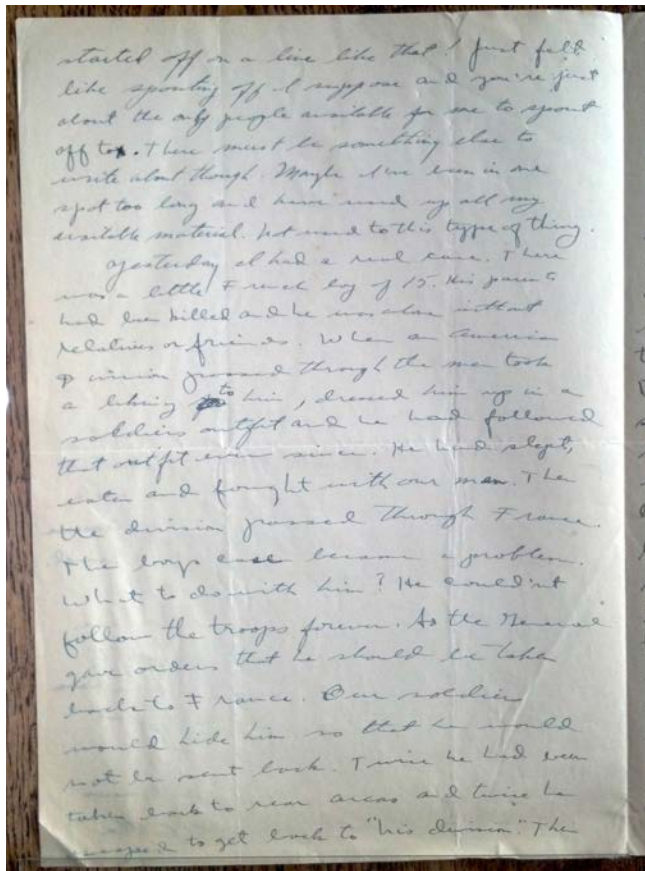 started off on a line like that! Just felt
like spouting off I suppose and you're just
about the only people available for me to spout
off to. There must be something else to
write about though. Maybe I've been in one
spot too long and have used up all my
available material. Not used to this type of thing.
Yesterday I had a real case. There
was a little French boy of 15. His parents
had been killed and he was alone without
relatives or friends. When an American
Division passed through the men took
a liking to him, dressed him up in a
soldiers outfit and he had followed
that outfit ever since. He had slept,
eaten and fought with our men. Then
the division passed through France.
The boys case became a problem.
What to do with him? He could'nt
follow the troops forever. So the General
gave orders that he should be taken
back to France. Our soldiers
would hide him so that he would
not be sent back. Twice he had been
taken back to rear areas and twice he
to get back to "his division." Then